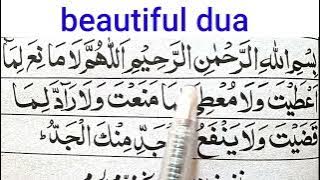 beautiful dua
بِسْمِ اللهِ الرَّحْمٰنِ الرَّحِيْمِ اَللّٰهُمَّ لَا مَا نِعَ لِمَا
اَعْطَيْتَ وَلَا مُعْطِيَ مَا مَنَعْتَ وَلَا رَآدَّ لِمَا
قَضَيْتَ وَلَا يَنْفَعُ جَدِّ مِنْكَ الْجَدُّ